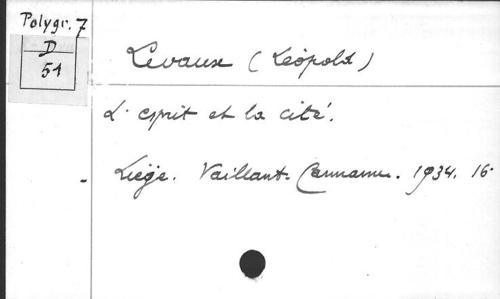 Polygr. 7
D
51
Levaux (Léopold)
L'esprit et la cité.
Liège. Vaillant-Carmanne. 1934. 16°